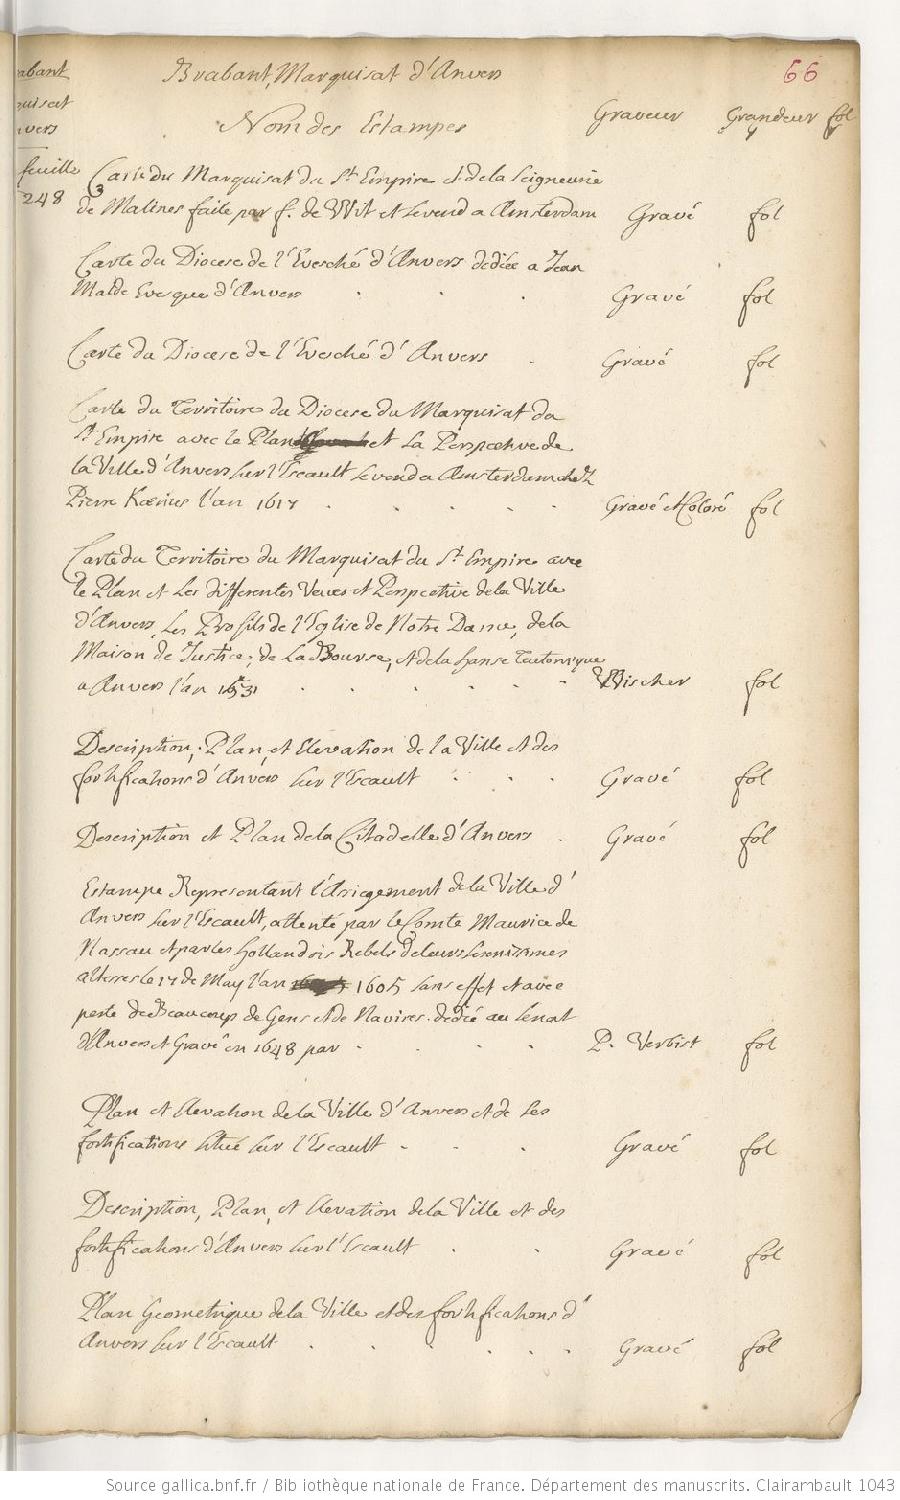 Brabant, Marquisat d'Anvers
66
Nom des Estampes Graveur Grandeur fol
feuille
248
Carte du Marquisat du St. Empire et de la Seigneurie
de Malines faite par f. de Wit et se vend a Amsterdam Gravé fol
Carte du Diocese de l'Evesché d'Anvers dediée a Jean
Malde Evesque d'Anvers Gravé fol
Carte du Diocese de l'Evesché d'Anvers Gravé fol
Carte du Territoire du Diocese du Marquisat du
St. Empire avec le Plan et La Perspective de
la Ville d'Anvers sur l'Escault se vend a Amsterdam chez
Pierre Kœrius l'an 1617 Gravé et Coloré fol
Carte du Territoire du Marquisat du St. Empire avec
le Plan et les differentes Veues et Perspective de la Ville
d'Anvers, les Profils de l'Eglise de Notre Dame, de la
Maison de Justice, de La Bourse, et de la hanse Teutonique
a Anvers l'an Wischer fol
Description, Plan et Elevation de la Ville et des
fortifications d'Anvers sur l'Escault Gravé fol
Description et Plan de la Citadelle d'Anvers Gravé fol
Estampe Representant l'Assiegement de la Ville d'
Anvers sur l'Escault, attenté par le Comte Maurice de
Nassau et par les hollandois Rebels de leurs serenissimes
altesses le 17 de May l'an 1605 sans effet et avec
perte de Beaucoup de Gens et de Navires. dedié au Senat
d'Anvers et Gravé en 1648 par P. Verbist fol
Plan et Elevation de la Ville d'Anvers et de ses
fortifications situé sur l'Escault Gravé fol
Description, Plan, et Elevation de la Ville et des
fortifications d'Anvers sur l'Escault Gravé fol
Plan Geometrique de la Ville et des fortifications d'
Anvers sur l'Escault Gravé fol
Source gallica.bnf.fr / Bibliothèque nationale de France. Département des manuscrits. Clairambault 1043